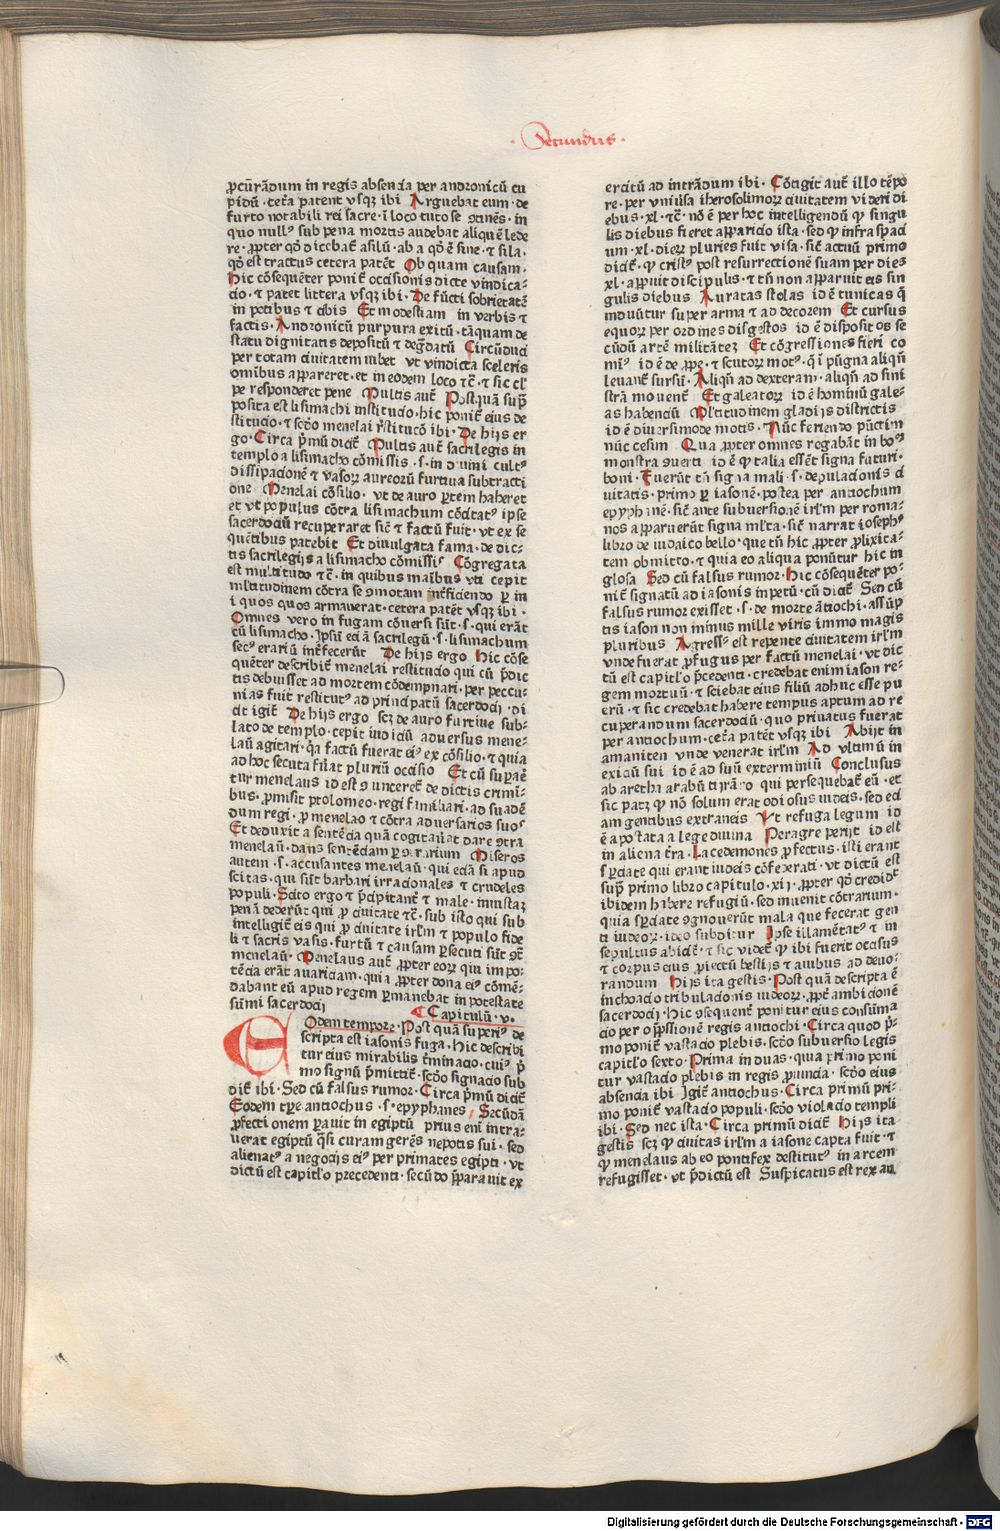 · Secundus ·
ꝓcūrādum in regis absencia per andronicū cu
pidū · cet̄a patent vsqꝫ ibi Arguebat eum · de
furto notabili rei sacre · ī loco tuto se ꝯtinēs · in
quo nullꝰ sub pena mortis audebat aliquē lede
re · ꝓpter qd̄ dicebat̄ asilū · ab a qd̄ ē sine · ⁊ sila ·
qd̄ est tractus cetera patēt Ob quam causam ·
Hic cōsequēter ponit̄ occisionis dicte vindica⸗
cio · ⁊ patet littera vsqꝫ ibi · De fūcti sobrietatē
in potibus ⁊ cibis Et modestiam in verbis ⁊
factis · Andronicū purpura exitū · tāquam de
statu dignitatis depositū ⁊ deg̅datū Circūduci
per totam ciuitatem iubet vt vindicta sceleris
omībus appareret · et in eodem loco ⁊c̄ · ⁊ sic cl̄
pe responderet pene Multis aut̄ Postquā sup̄
posita est lisimachi institucio · hic ponit̄ eius de
stitucio · ⁊ scd̄o menelai r̄stitucō ibi · De hijs er
go · Circa p̄mū dicit̄ Multis aut̄ sacrilegijs in
templo a lisimacho cōmissis · s · in diuini cultꝰ
dissipacionē ⁊ vasoꝝ aureorū furtiua subtracti
one Menelai cōsilio · vt de auro ꝑtem haberet
et vt populus cōtra lisimachum cōcitatꝰ ipse
sacerdociū recuperaret sic̄ ⁊ factū fuit · vt ex se
quētibus patebit Et diuulgata fama · de dic⸗
tis sacrilegijs a lisimacho cōmissis Cōgregata
est multitudo ⁊c̄ · in quibus maībus vti cepit
ml̄titudinem cōtra se ꝯmotam int̄ficiendo ꝑ in
i quos quos armauerat · cetera patēt vsqꝫ ibi ·
Omnes vero in fugam cōuersi sūt · s · qui erāt
cū lisimacho · Ipsū eciā sacrilegū · s · lisimachum
secꝰ erariū int̄fecerūt De hijs ergo Hic cōse
quēter describit̄ menelai restitucio qui cū p̄dic
tis debuisset ad mortem cōdempnari · per peccu⸗
nias fuit restitutꝰ ad principatū sacerdocij · di
cit igit̄ De hijs ergo scꝫ de auro furtiue sub⸗
lato de templo · cepit iudiciū aduersus mene⸗
laū agitari · qꝛ factū fuerat eiꝰ ex cōsilio · ⁊ quia
ad hoc secuta fūat pluriū occisio Et cū supaēt̄
tur menelaus id est ꝯuinceret̄ de dictis crimi⸗
bus · ꝓmisit ptolomeo · regi familiari · ad suadē
dum regi · ꝓ menelao ⁊ cōtra aduersarios suoꝰ
Et deduxit a sentēcia quā cogitauat dare ꝯtra
menelaū · dans sentēciam ꝑ ꝯtrarium Miseros
autem · s · accusantes menelaū · qui eciā si apud
scitas · qui sūt barbari irracionales ⁊ crudeles
populi · Scito ergo ⁊ p̄cipitant̄ ⁊ male · iniustaꝫ
penā dederūt qui ꝓ ciuitate ⁊c̄ · sub isto qui sub
intelligit̄ eis qui ꝓ ciuitate irlm̄ ⁊ populo fide
li ⁊ sacris vasis · furtū ⁊ causam ꝑsecuti sūt ꝯt̄
menelaū · Menelaus aut̄ ꝓpter eoꝝ qui in po⸗
tēcia erāt auariciam · quia ꝓpter dona eiꝰ cōmē⸗
dabant eū apud regem ꝑmanebat in potestate
sūmi sacerdocij
Capitulū · v ·
EOdem tempore · Post quā superiꝰ de
scripta est iasonis fuga · hic describi
tur eius mirabilis t̄minacio · cuiꝰ p̄
mo signū p̄mittit̄ · scd̄o signacio sub
dit̄ ibi · Sed cū falsus rumor · Circa p̄mū dicit̄
Eodem tp̄re antiochus · s · epyphanes Secūdā
ꝓfectionem ꝑauit in egiptū prius eni̅ intra⸗
uerat egiptū q̄si curam gerēs nepotis sui · sed
alienatꝰ a negocijs eiꝰ per primates egipti · vt
dictū est capitl̄o precedenti · secūdo p̄parauit ex
ercitū ad intrādum ibi · Cōtigit aut̄ illo tēpo
re · per vniuīsa iherosolimoꝝ ciuitatem videri di
ebus · xl · ⁊c̄ · nō ē per hoc intelligendū ꝙ singu
lis diebus fieret apparicio ista · sed ꝙ infra spaci
um · xl · dieꝝ pluries fuit visa · sic̄ actuū primo
dicit̄ · ꝙ cristꝰ post resurrectionē suam per dies
xl · apparuit discipulis · ⁊ tn̄ non apparuit eis sin
gulis diebus Auratas stolas id ē tunicas q̄
induūtur super arma ⁊ ad decorem Et cursus
equoꝝ per ordines digestos id ē dispositos se
cūdū artē militātes Et cōgressiones fieri co
miꝰ id ē de ꝓpe · ⁊ scutoꝝ motꝰ · q̄ i pūgna aliqn̄
leuant̄ sursū · Aliqn̄ ad dexteram · aliqn̄ ad sini
strā mouent̄ Et galeatoꝝ id ē hominū gale⸗
as habenciū Ml̄titudinem gladijs districtis
id ē diuersimode motis · Nūc feriendo pūctim
nūc cesim Qua ꝓpter omnes rogabāt in boꝰ
monstra ꝯuerti id ē ꝙ talia essēt signa futuri ·
boni · Fuerūt tn̄ signa mali · s · depulacionis ci
uitatis · primo ꝑ iasonē · postea per antiochum
epyphanē · sic̄ ante subuersionē irlm̄ per roma⸗
nos apparuerūt signa ml̄ta · sic̄ narrat iosephꝰ
libro de iudaico bello · que tn̄ hic ꝓpter ꝓlixita⸗
tem obmitto · ⁊ quia eo aliqua ponūtur hic in
glosa Sed cū falsus rumor · Hic cōsequēter po⸗
nit̄ signatū ad iasonis inpetū · cū dicit̄ Sed cū
falsus rumor exisset · s · de morte ātiochi · assūp
tis iason non minus mille viris immo magis
pluribus Agressꝰ est repente ciuitatem irlm̄
vnde fuerat ꝓfugus per factū menelai · vt dic
tū est capitl̄o p̄cedenti · credebat enim iason re⸗
gem mortuū · ⁊ sciebat eius filiū adhuc esse pu
erū · ⁊ sic credebat habere tempus aptum ad re
cuperandum sacerdociū · quo priuatus fuerat
per antiochum · cet̄a patēt vsqꝫ ibi Abijt in
amaniten vnde venerat irlm̄ Ad vltimū in
exiciū sui id ē ad suū exterminiū Conclusus
ab aretha arabū tirāno qui persequebat̄ eū · et
sic patꝫ ꝙ nō solum erat odiosus iudeis · sed eci
am gentibus extraneis Vt refuga legum id
ē apostata a lege diuina Peragre perijt id est
in aliena t̄ra · Lacedemones ꝓfectus · isti erant
sꝑciate qui erant iudeis cōfederati · vt dictū est
sup̄ primo libro capitulo · xij · ꝓpter qd̄ credidit
ibidem habere refugiū · sed inuenit cōtrarium ·
quia sꝑciate ꝯgnouerūt mala que fecerat gen
ti iudeoꝝ · ideo subditur Ipse illamētatꝰ ⁊ in
sepultus abicit̄ · ⁊ sic videt̄ ꝙ ibi fuerit occisus
⁊ corpus eius ꝓiectū bestijs ⁊ auibus ad deuo⸗
randum Hijs ita gestis · Post quā descripta ē
inchoacio tribulacionis iudeoꝝ · ꝓpt̄ ambicionē
sacerdocij · hic ꝯsequent̄ ponitur eius consūma
cio per opp̄ssionē regis antiochi · Circa quod p̄⸗
mo ponit̄ vastacio plebis · scd̄o subuersio legis
capitl̄o sexto · Prima in duas · quia primo poni
tur vastacio plebis in regis p̄sencia · scd̄o eius
absencia ibi Igit̄ antiochus · Circa primū pri⸗
mo ponit̄ vastacio populi · scd̄o violacio templi
ibi · Sed nec ista · Circa primū dicit̄ Hijs ita
gestis scꝫ ꝙ ciuitas irlm̄ a iasone capta fuit · ⁊
ꝙ menelaus ab eo pontifex destitutꝰ in arcem
refugisset · vt p̄dictū est Suspicatus est rex an
Digitalisierung gefördert durch die Deutsche Forschungsgemeinschaft - DFG